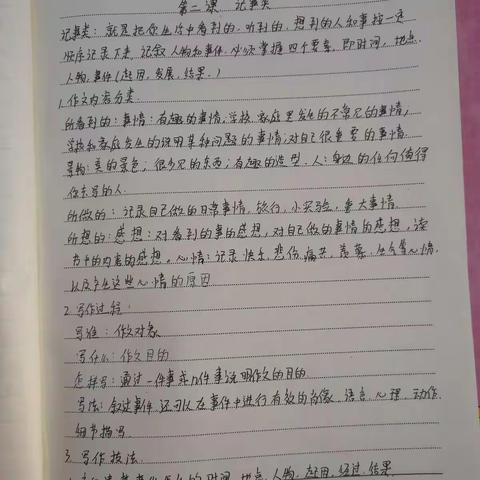 第二课 记事类
记事类：就是把你生活中看到的、听到的、想到的人和事按一定
顺序记录下来，记叙人物和事件，必须掌握四个要素，即时间、地点、
人物、事件（起因、发展、结果。）
1.作文内容分类
所看到的：事情：有趣的事情，学校、家庭里发生的不常见的事情，
学校和家庭发生的说明某种问题的事情；对自己很重要的事情.
景物：美的景色；很少见的东西；有趣的造型. 人：身边的任何值得
你去写的人.
所做的：记录自己做的日常事情，旅行，小实验，重大事情.
所想的：感想：对看到的事的感想，对自己做的事情的感想，读
书中的内容的感想. 心情：记录快乐、悲伤、痛苦、羡慕、生气等心情
以及产生这些心情的原因
2.写作过程：
写谁：作文对象
写什么：作文目的
怎样写：通过一件事或几件事说明作文的目的.
写法：叙述事件，还可以在事件中进行有效的肖像、语言、心理、动作、
细节描写.
3.写作技法.
的时间、地点、人物、起因、经过、结果